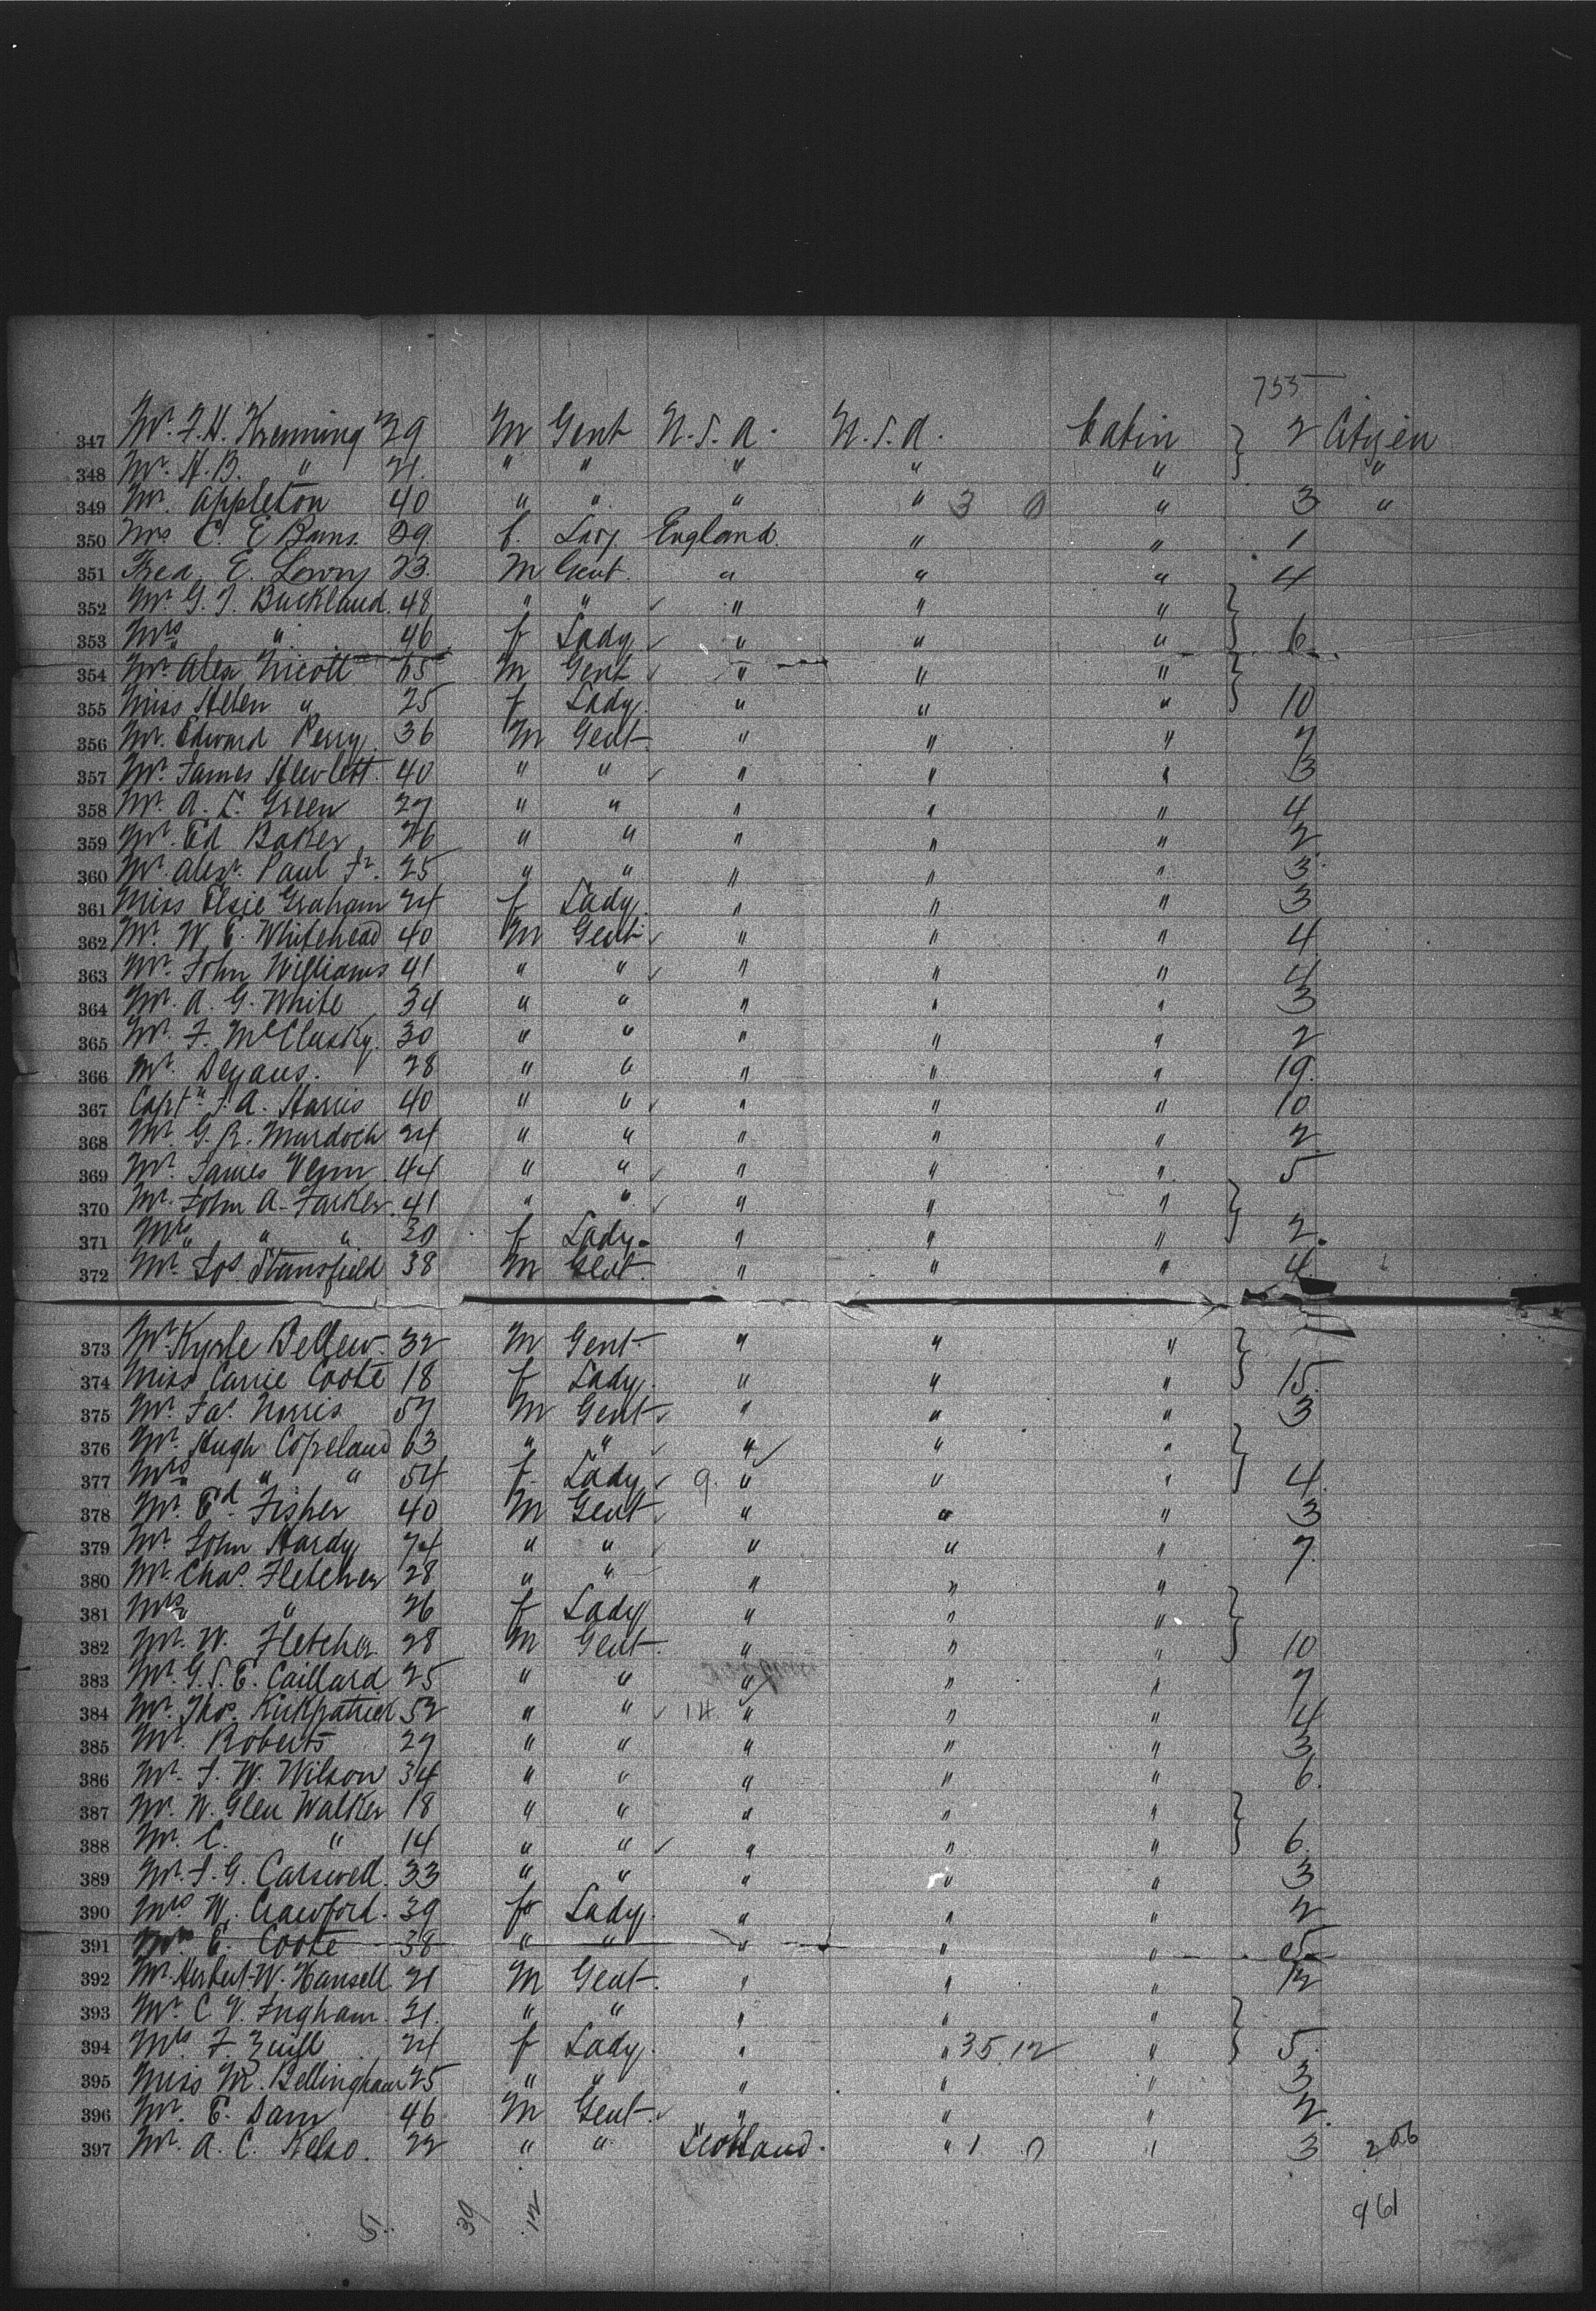 755
347 Mr. F. H. Krenning 29 M Gent U.S.A. U.S.A. Cabin 2 Citizen
348 Mr. H. B. " 21. " " " " " "
349 Mr. Appleton 40 " " " " 3 0 " 3 "
350 Mrs C. E. 29 f. Lady England " " 1
351 Fred E. Lowry 23. M Gent. " " " 4
352 Mr. G. J. Buckland. 48 " " " " "
353 Mrs " 46 f Lady " " " 6
354 Mr. Alex Nicoll 65 M Gent " " "
355 Miss Helen " 25 f Lady. " " " 10
356 Mr. Edward Perry. 36 M Gent. " " " 7
357 Mr. James Hewlett. 40 " " " " " 3
358 Mr. A. L. Green 27 " " " " " 4
359 Mr. Ed Baker 26 " " " " " 2
360 Mr. Alexr. Paul Jr. 25 " " " " " 3.
361 Miss Elsie Graham 24 f Lady. " " " 3
362 Mr. W. E. Whitehead 40 M Gent " " " 4
363 Mr. John Williams 41 " " " " " 4
364 Mr. A. G. White 34 " " " " " 3
365 Mr. J. McClusky. 30 " " " " " 2
366 Mr. 28 " " " " " 19.
367 Captn J. A. Harris 40 " " " " " 10
368 Mr. G. R. Murdoch 24 " " " " " 2
369 Mr. James Venn 44 " " " " " 5
370 Mr. John A. 41 " " " " "
371 Mrs " " 30 f Lady. " " " 2.
372 Mr. Jos Stansfield 38 M Gent. " " " 4
373 Mr. Kyrle Bellew. 32 M Gent " " "
374 Miss Carrie Coote 18 f Lady. " " " 15.
375 Mr. Jas. Norris 57 M Gent " " " 3
376 Mr. Hugh Copeland 63 " " " " "
377 Mrs " " 54 f Lady 9. " " " 4.
378 Mr. Ed Fisher 40 M Gent " " " 3
379 Mr. John Hardy 74 " " " " " 7.
380 Mr. Chas. Fletcher 28 " " " " "
381 Mrs " 26 f Lady " " "
382 Mr. W. Fletcher 28 M Gent. " " " 10
383 Mr. G. S. E. Caillard 25 " " " " " 7
384 Mr. Thos. Kirkpatrick 52 " " 14 " " " 4
385 Mr. Roberts 27 " " " " " 3
386 Mr. J. W. Wilson 34 " " " " " 6.
387 Mr. W. Glen Walker 18 " " " " "
388 Mr. C. " 14 " " " " " 6.
389 Mr. J. G. Carswell. 33 " " " " " 3
390 Mrs. W. Crawford. 39 f Lady. " " " 2
391 E. Coote 38 " " " " " 5
392 Mr. Herbert W. Hansell. 21 M Gent. " " " 12
393 Mr. C. V. Ingham. 31. " " " " "
394 Mrs. F. 24 f Lady. " " 35.12 " 5.
395 Miss M. Bellingham 25 " " " " " 3
396 Mr. E. Dam 46 M Gent. " " " 2.
397 Mr. A. C. Kelso. 22 " " Scotland. " 1. 0 " 3 206
5. 39 12 961